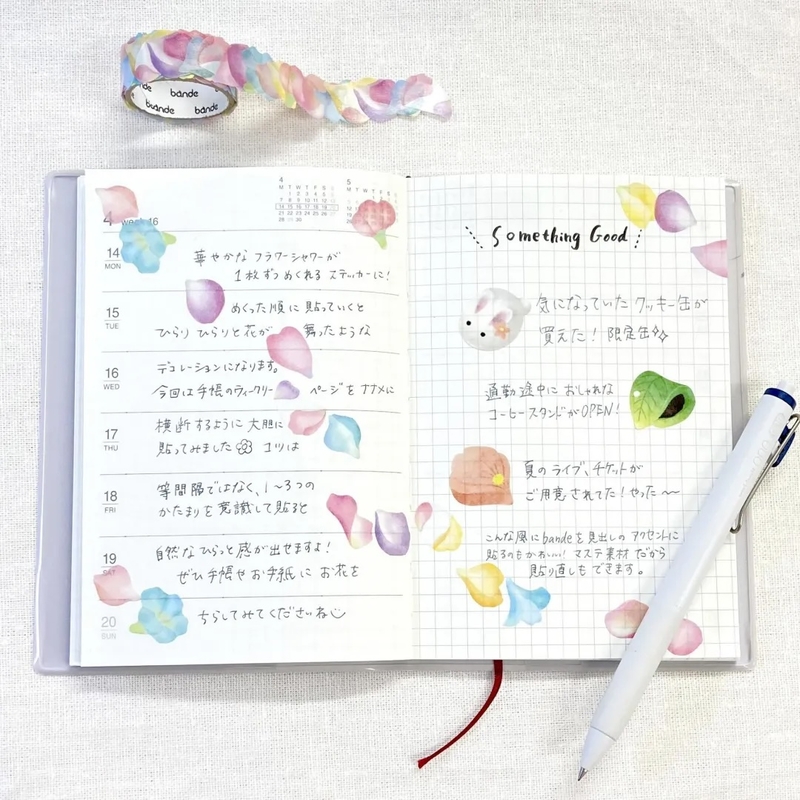 bande
bande
bande
4 week 16
4
M T W T F S S
1 2 3 4 5 6 7
8 9 10 11 12 13 14
15 16 17 18 19 20 21
22 23 24 25 26 27 28
29 30
5
M T W T F S S
14
MON
華やかな フラワーシャワーが
1枚ずつめくれる ステッカーに!
15
TUE
めくった順に貼っていくと
ひらり ひらりと花が 舞ったような
16
WED
デコレーションになります。
今回は手帳のウィークリー ページをナナメに
17
THU
横断するように大胆に
貼ってみました コツは
18
FRI
等間隔ではなく、1〜3つの
かたまりを意識して貼ると
19
SAT
自然なひらっと感が出せますよ!
ぜひ手帳やお手紙に お花を
20
SUN
ちらしてみてくださいね
Something Good
気になっていた クッキー缶が
買えた! 限定缶
通勤途中に おしゃれな
コーヒースタンドがOPEN!
夏のライブ、チケットが
ご用意されてた!やった〜〜
こんな風にbandeを見出しのアクセントに
貼るのもかわいい! マステ素材だから
貼り直しもできます。